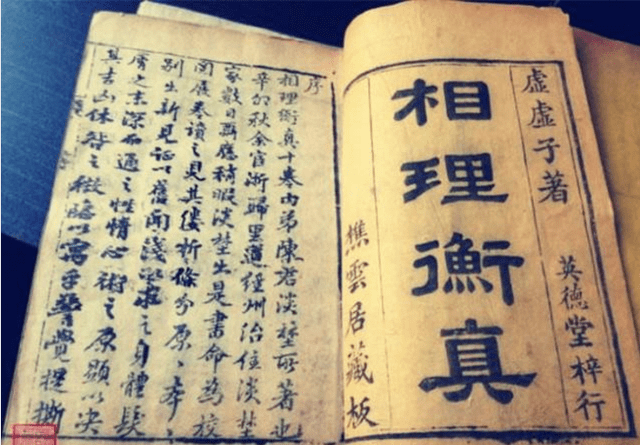 虛虛子著
英德堂梓行
相理衡真
樵雲居藏板
序
相理衡真十卷內弟陳君淡埜所著也
辛卯秋余官浙歸里道經州治住淡埜
家數日應稍暇淡埜出是書命為校
閱展卷讀之見其縷析條分原〻本〻
別出新見证以舊聞淺之身體髮
膚之末深而通之性情心術之原顯以決
其吉凶休咎之徵隱以寓乎警覺提撕